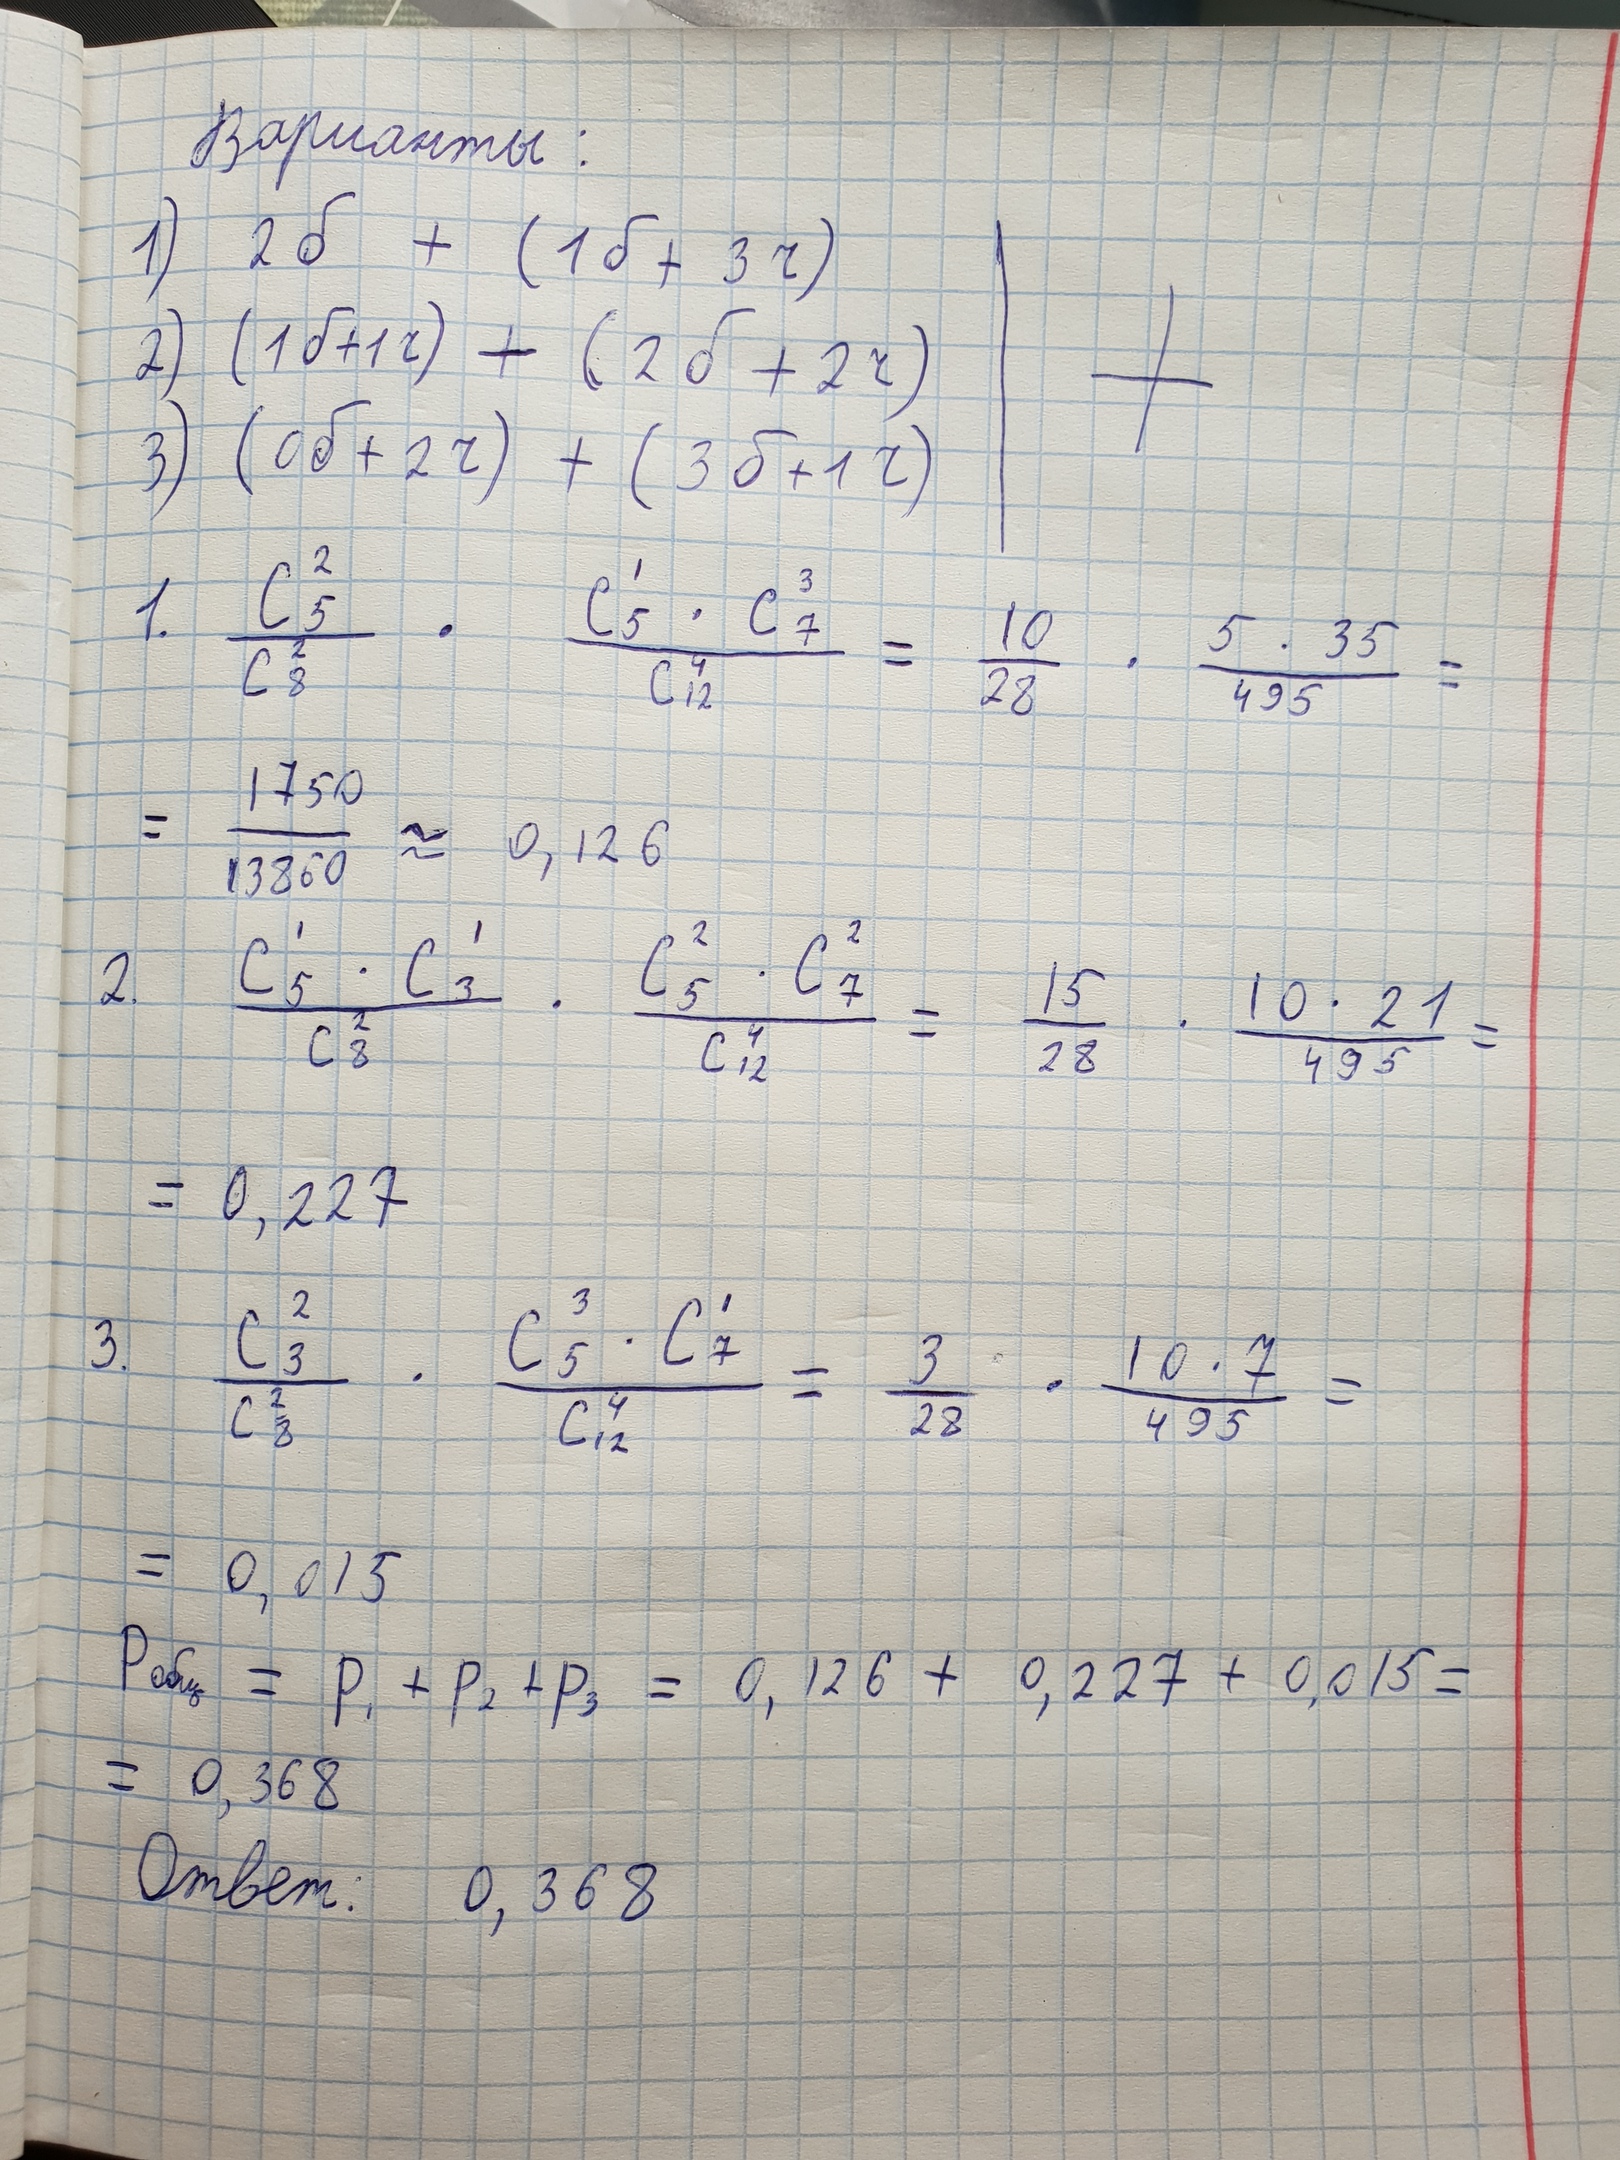 Варианты:
1) 2б + (1б + 3ч)
2) (1б+1ч) + (2б + 2ч)
3) (0б + 2ч) + (3б+1ч)
+
1. C₅²/C₈² · C₅¹ · C₇³/C₁₂⁴ = 10/28 · 5 · 35/495 =
= 1750/13860 ≈ 0,126
2. C₅¹ · C₃¹/C₈² · C₅² · C₇²/C₁₂⁴ = 15/28 · 10 · 21/495 =
= 0,227
3. C₃²/C₈² · C₅³ · C₇¹/C₁₂⁴ = 3/28 · 10 · 7/495 =
= 0,015
Pобщ = p₁ + p₂ + p₃ = 0,126 + 0,227 + 0,015 =
= 0,368
Ответ: 0,368